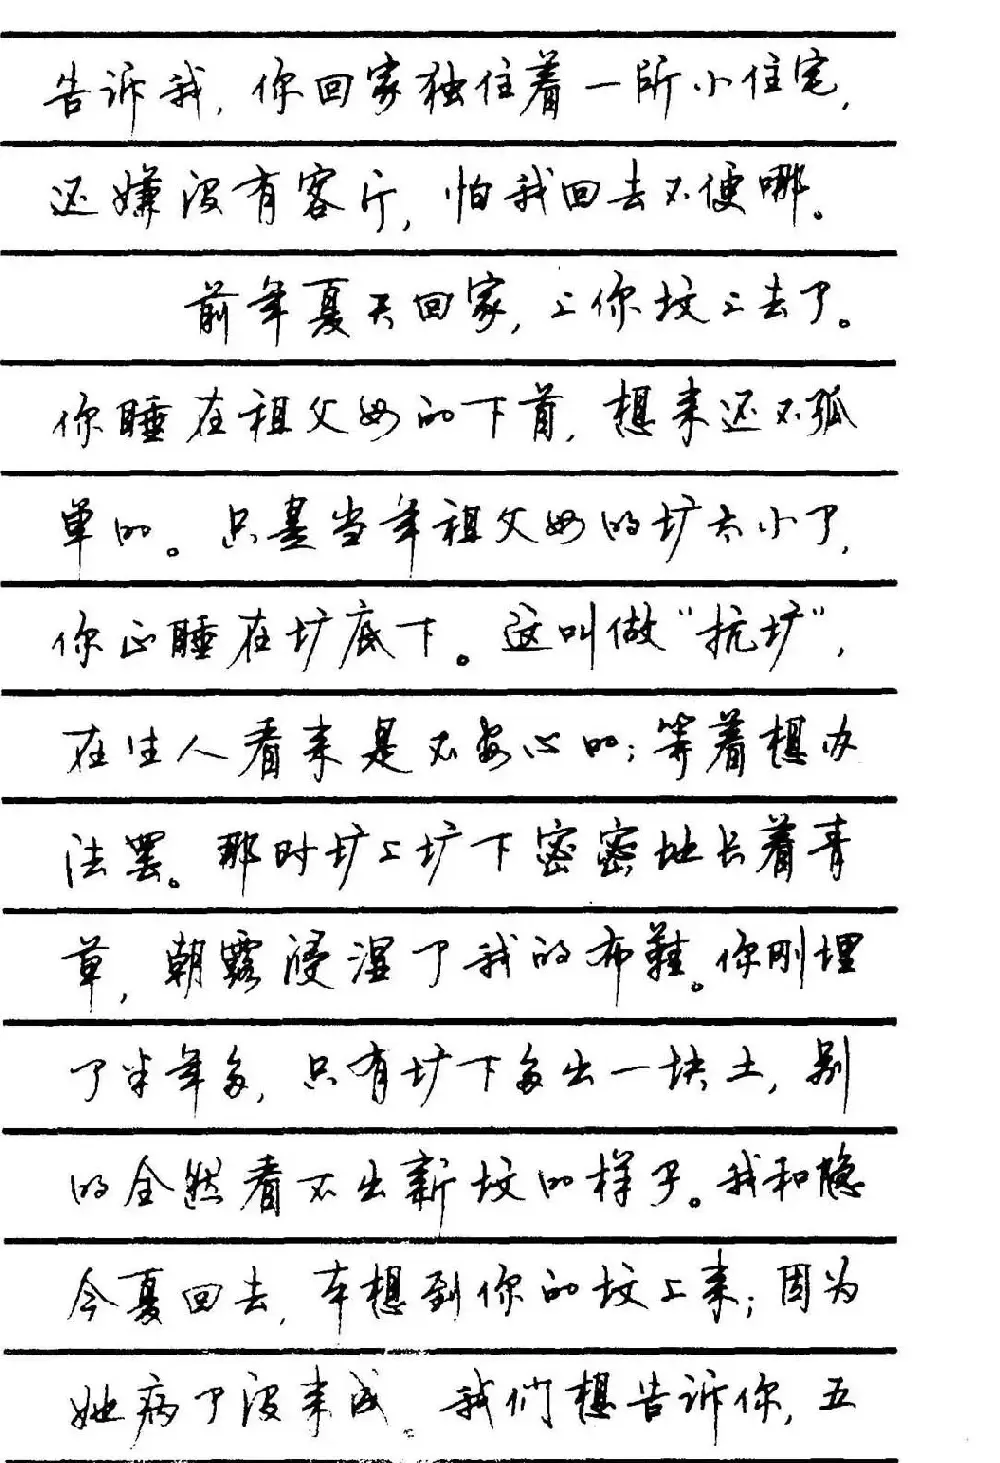 告诉我，你回家独住着一所小住宅，
还嫌没有客厅，怕我回去不便哪。
前年夏天回家，上你坟上去了。
你睡在祖父母的下首，想来还不孤
单的。只是当年祖父母的圹太小了，
你正睡在圹底下。这叫做“抗圹”，
在生人看来是不安心的；等着想办
法罢。那时圹上圹下密密地长着青
草，朝露浸湿了我的布鞋。你刚埋
了半年多，只有圹下多出一块土，别
的全然看不出新坟的样子。我和隐
今夏回去，本想到你的坟上来；因为
她病了没来成。我们想告诉你，五